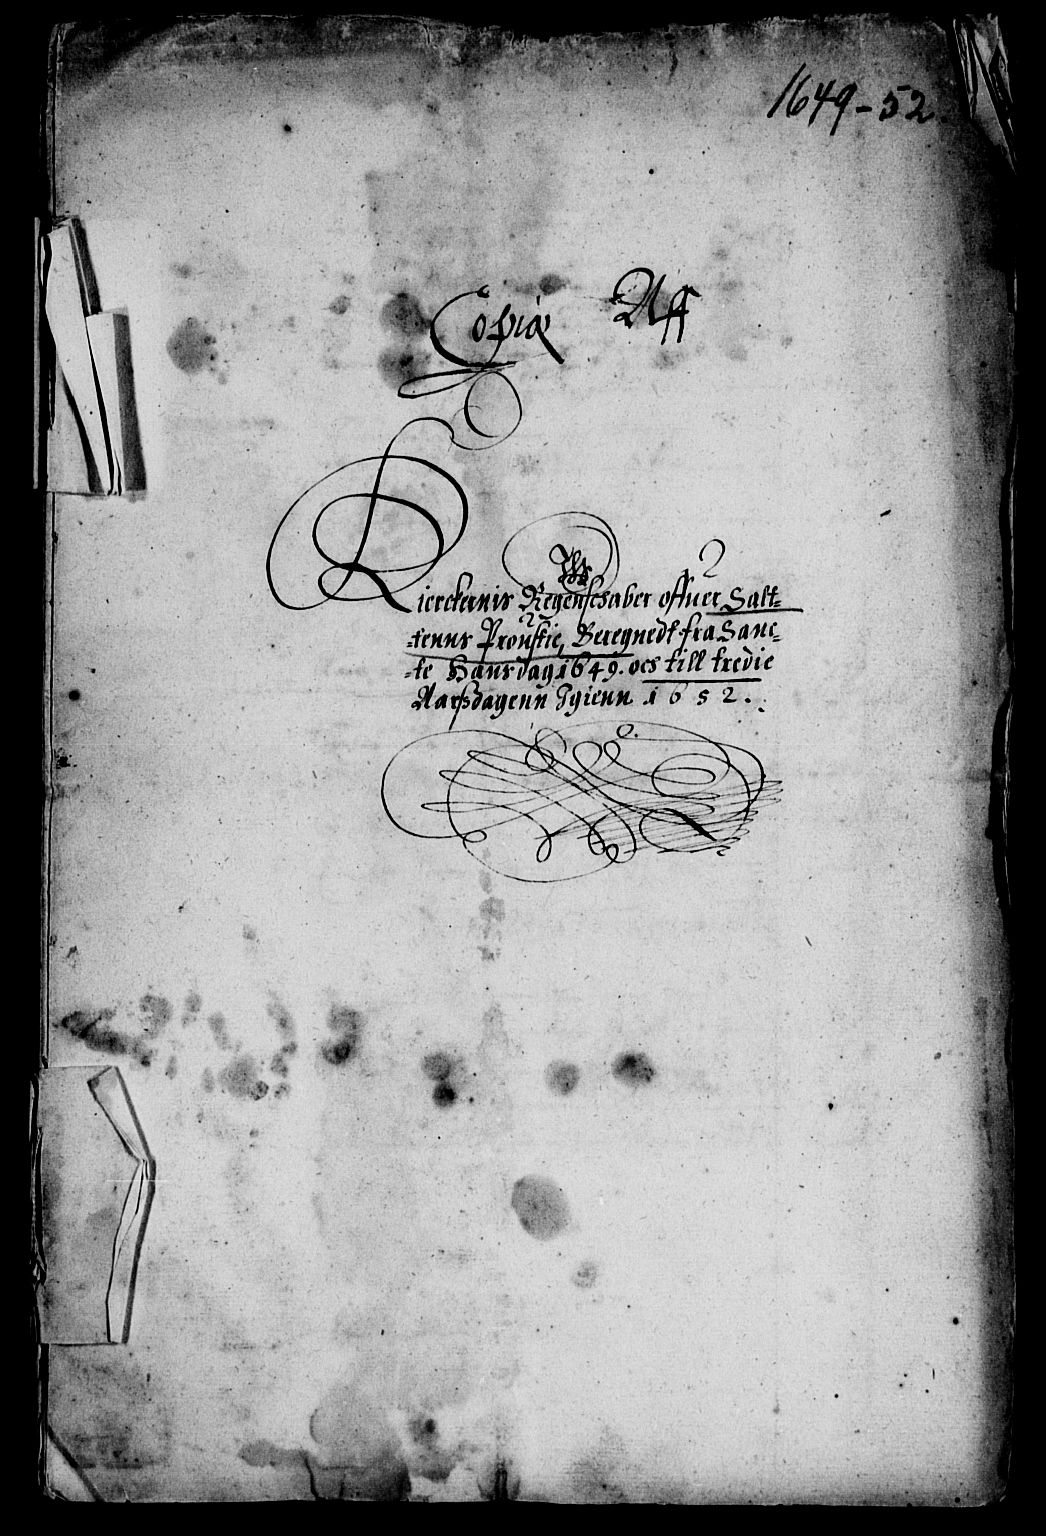 1649-52.
Copia Aff
Kierckernis Regenschaber offuer Salt-
-tenns Proustie, Beregnedt fra Sanc-
-te Hansdag 1649. och till tredie
Aarssdagenn Igienn 1652.